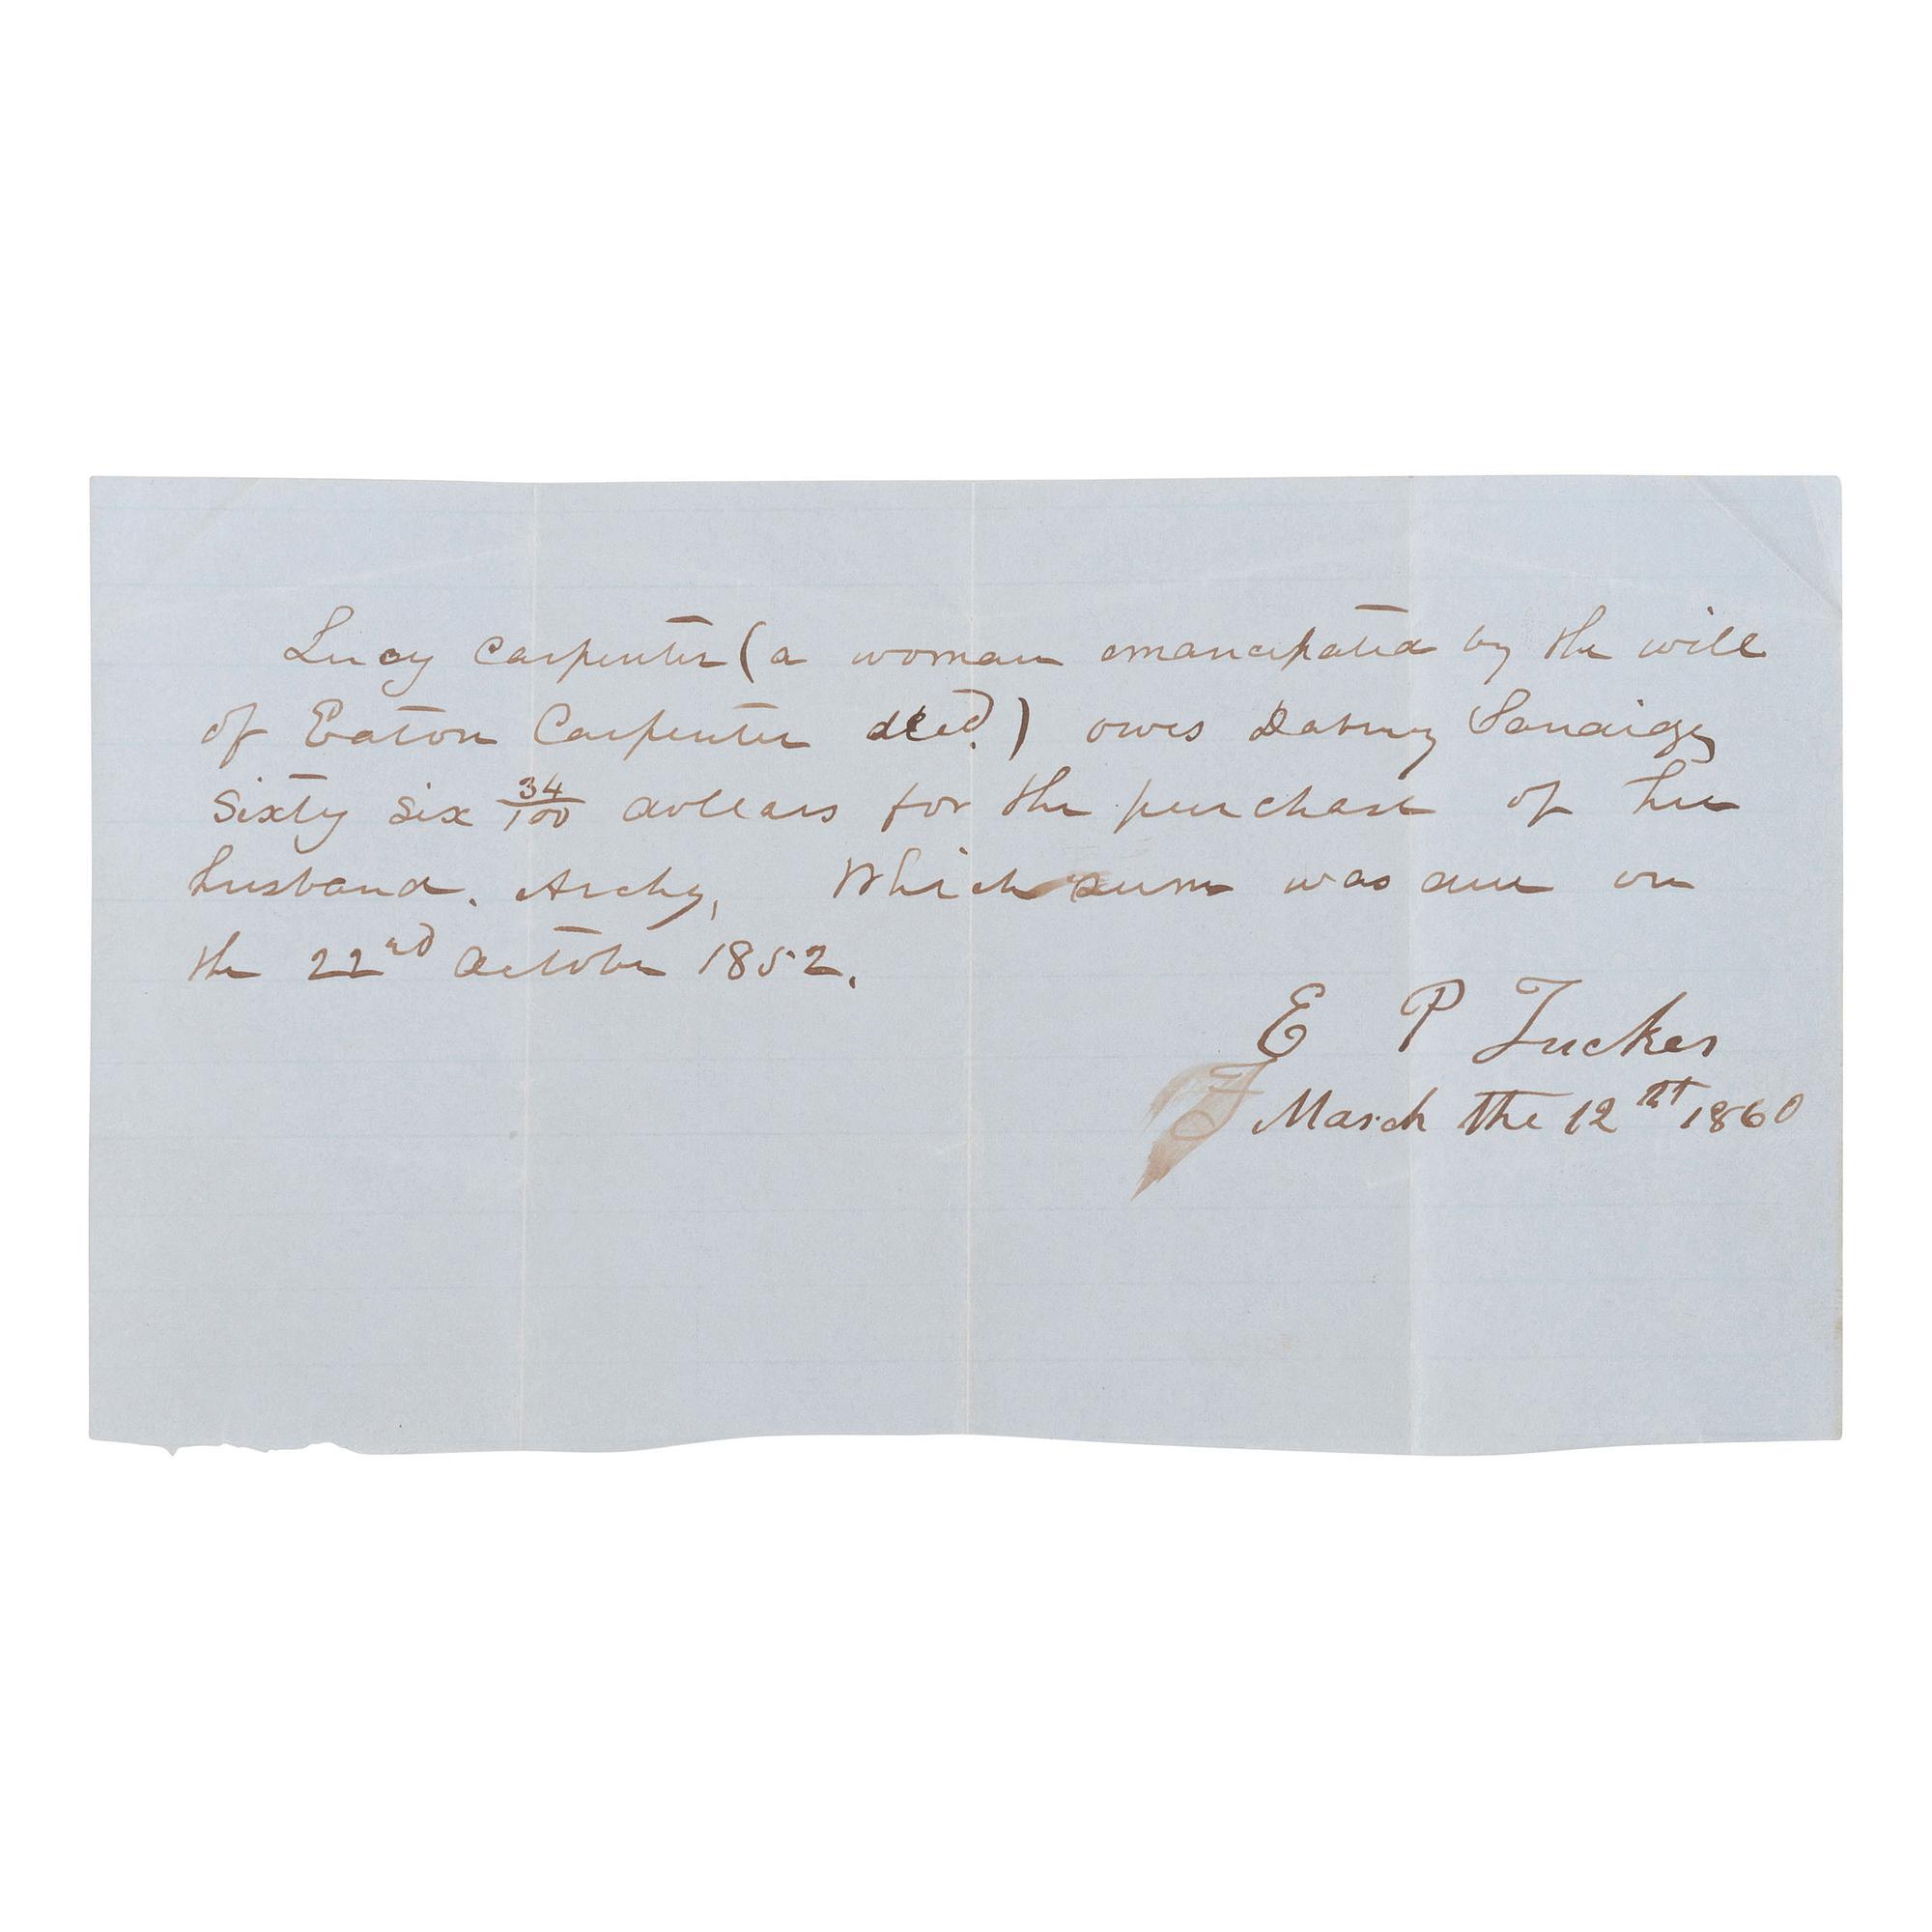 Lucy Carpenter (a woman emancipated by the will
of Eaton Carpenter decd.) owes Dabney
Sixty six 34/100 dollars for the purchase of her
husband. Archy, Which sum was due on
the 22nd October 1852.
E P Tucker
March the 12 1860